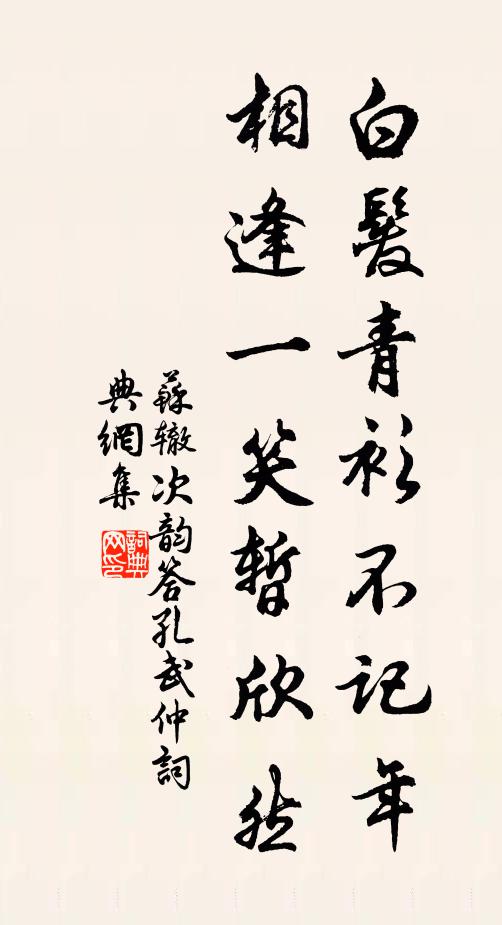 白髮青衫不記年
相逢一笑暫欣然
蘇辙次韵荅孔武仲詞
典網集
詞典
网印